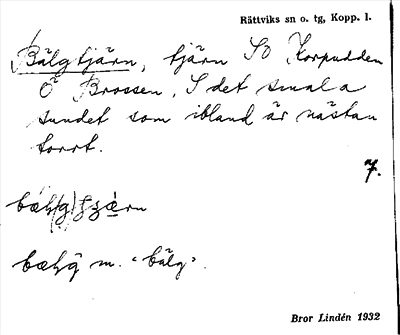 Rättviks sn o. tg, Kopp. l.
Bälgtjärn, tjärn SO Korpudden
O Brossen, I det smala
sundet som ibland är nästan
torrt.
7.
m. "bälg".
Bror Lindén 1932